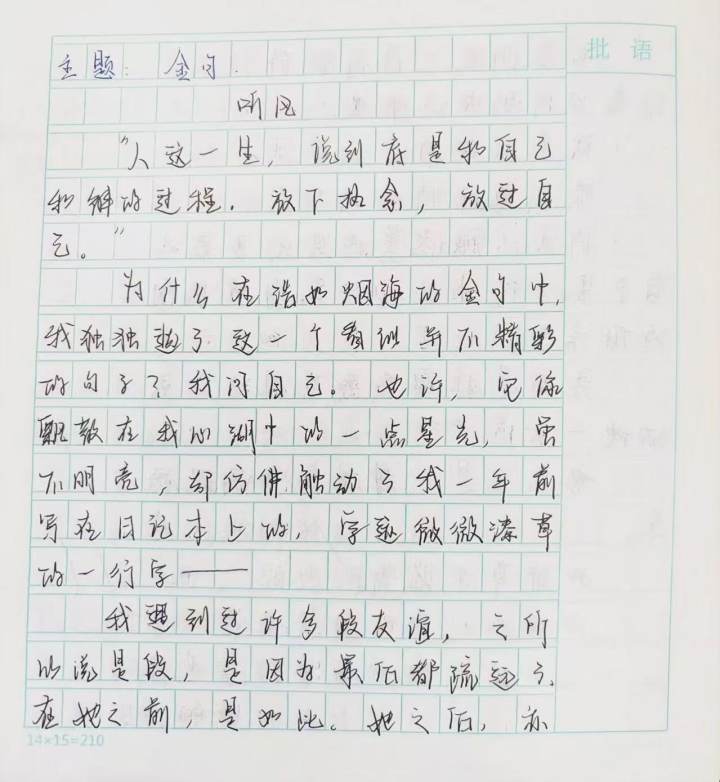 批 语
主题：金句.
听风
“人这一生，说到底是和自己
和解的过程. 放下执念，放过自
己。”
为什么在浩如烟海的金句中，
我独独选了这一个看似并不精彩
的句子？我问自己。也许，它像
飘散在我心湖中的一点星光，虽
不明亮，却仿佛触动了我一年前
写在日记本上的，字迹微微潦草
的一行字——
我遇到过许多段友谊，之所
以说是段，是因为最后都疏远了.
在她之前，是如此。她之后，亦
14×15=210